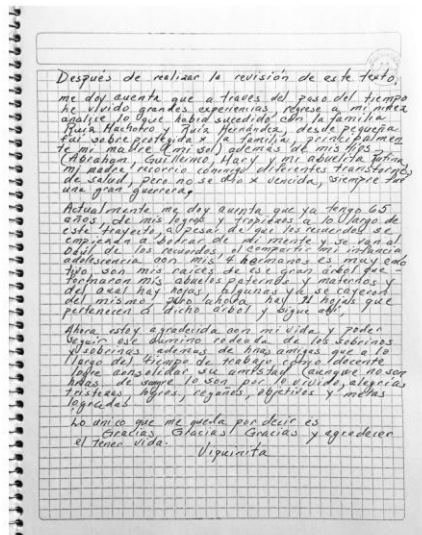 Después de realizar la revisión de este texto,
me doy cuenta que a traves del paso del tiempo
he vivido grandes experiencias regrese a mi niñez
analice lo que había sucedido con la familia
Ruiz Machorro y Ruiz Hernández, desde pequeña
fui sobreprotegida x la familia, principalmen
te mi madre (mi sol) además de mis tios
(Abraham, Guillermo, Mary y mi abuelita
mi madre recorrio conmigo diferentes transtornos
de salud, pero no se dio x vencida, siempre fue
una gran guerrera,
Actualmente me doy cuenta que ya tengo 65
años, de mis logros y tropiezos a lo largo de
este trayecto, a pesar de que los recuerdos se
empiezan a borrar de mi mente y se van al
baúl de los recuerdos, el compartir mi infancia
adolescencia con mis 4 hermanos es muy
son mis raíces de ese gran árbol que
formaron mis abuelos paternos y maternos y
del cual hay hojas, algunas ya se cayeron
del mismo, pero ahora hay 21 hojas que
pertenecen a dicho árbol y sigue
Ahora estoy agradecida con mi vida y poder
seguir ese camino rodeada de los sobrinos
y sobrinas, además de amigas que a lo
largo del tiempo de trabajo como docente
logre consolidar su amistad (aunque no son
de sangre lo son por lo vivido, alegrías
tristezas, logros, regaños, objetivos y metas
logradas
Lo único que me queda por decir es
Gracias Gracias Gracias y agradecer
el tener vida.
Viquinita